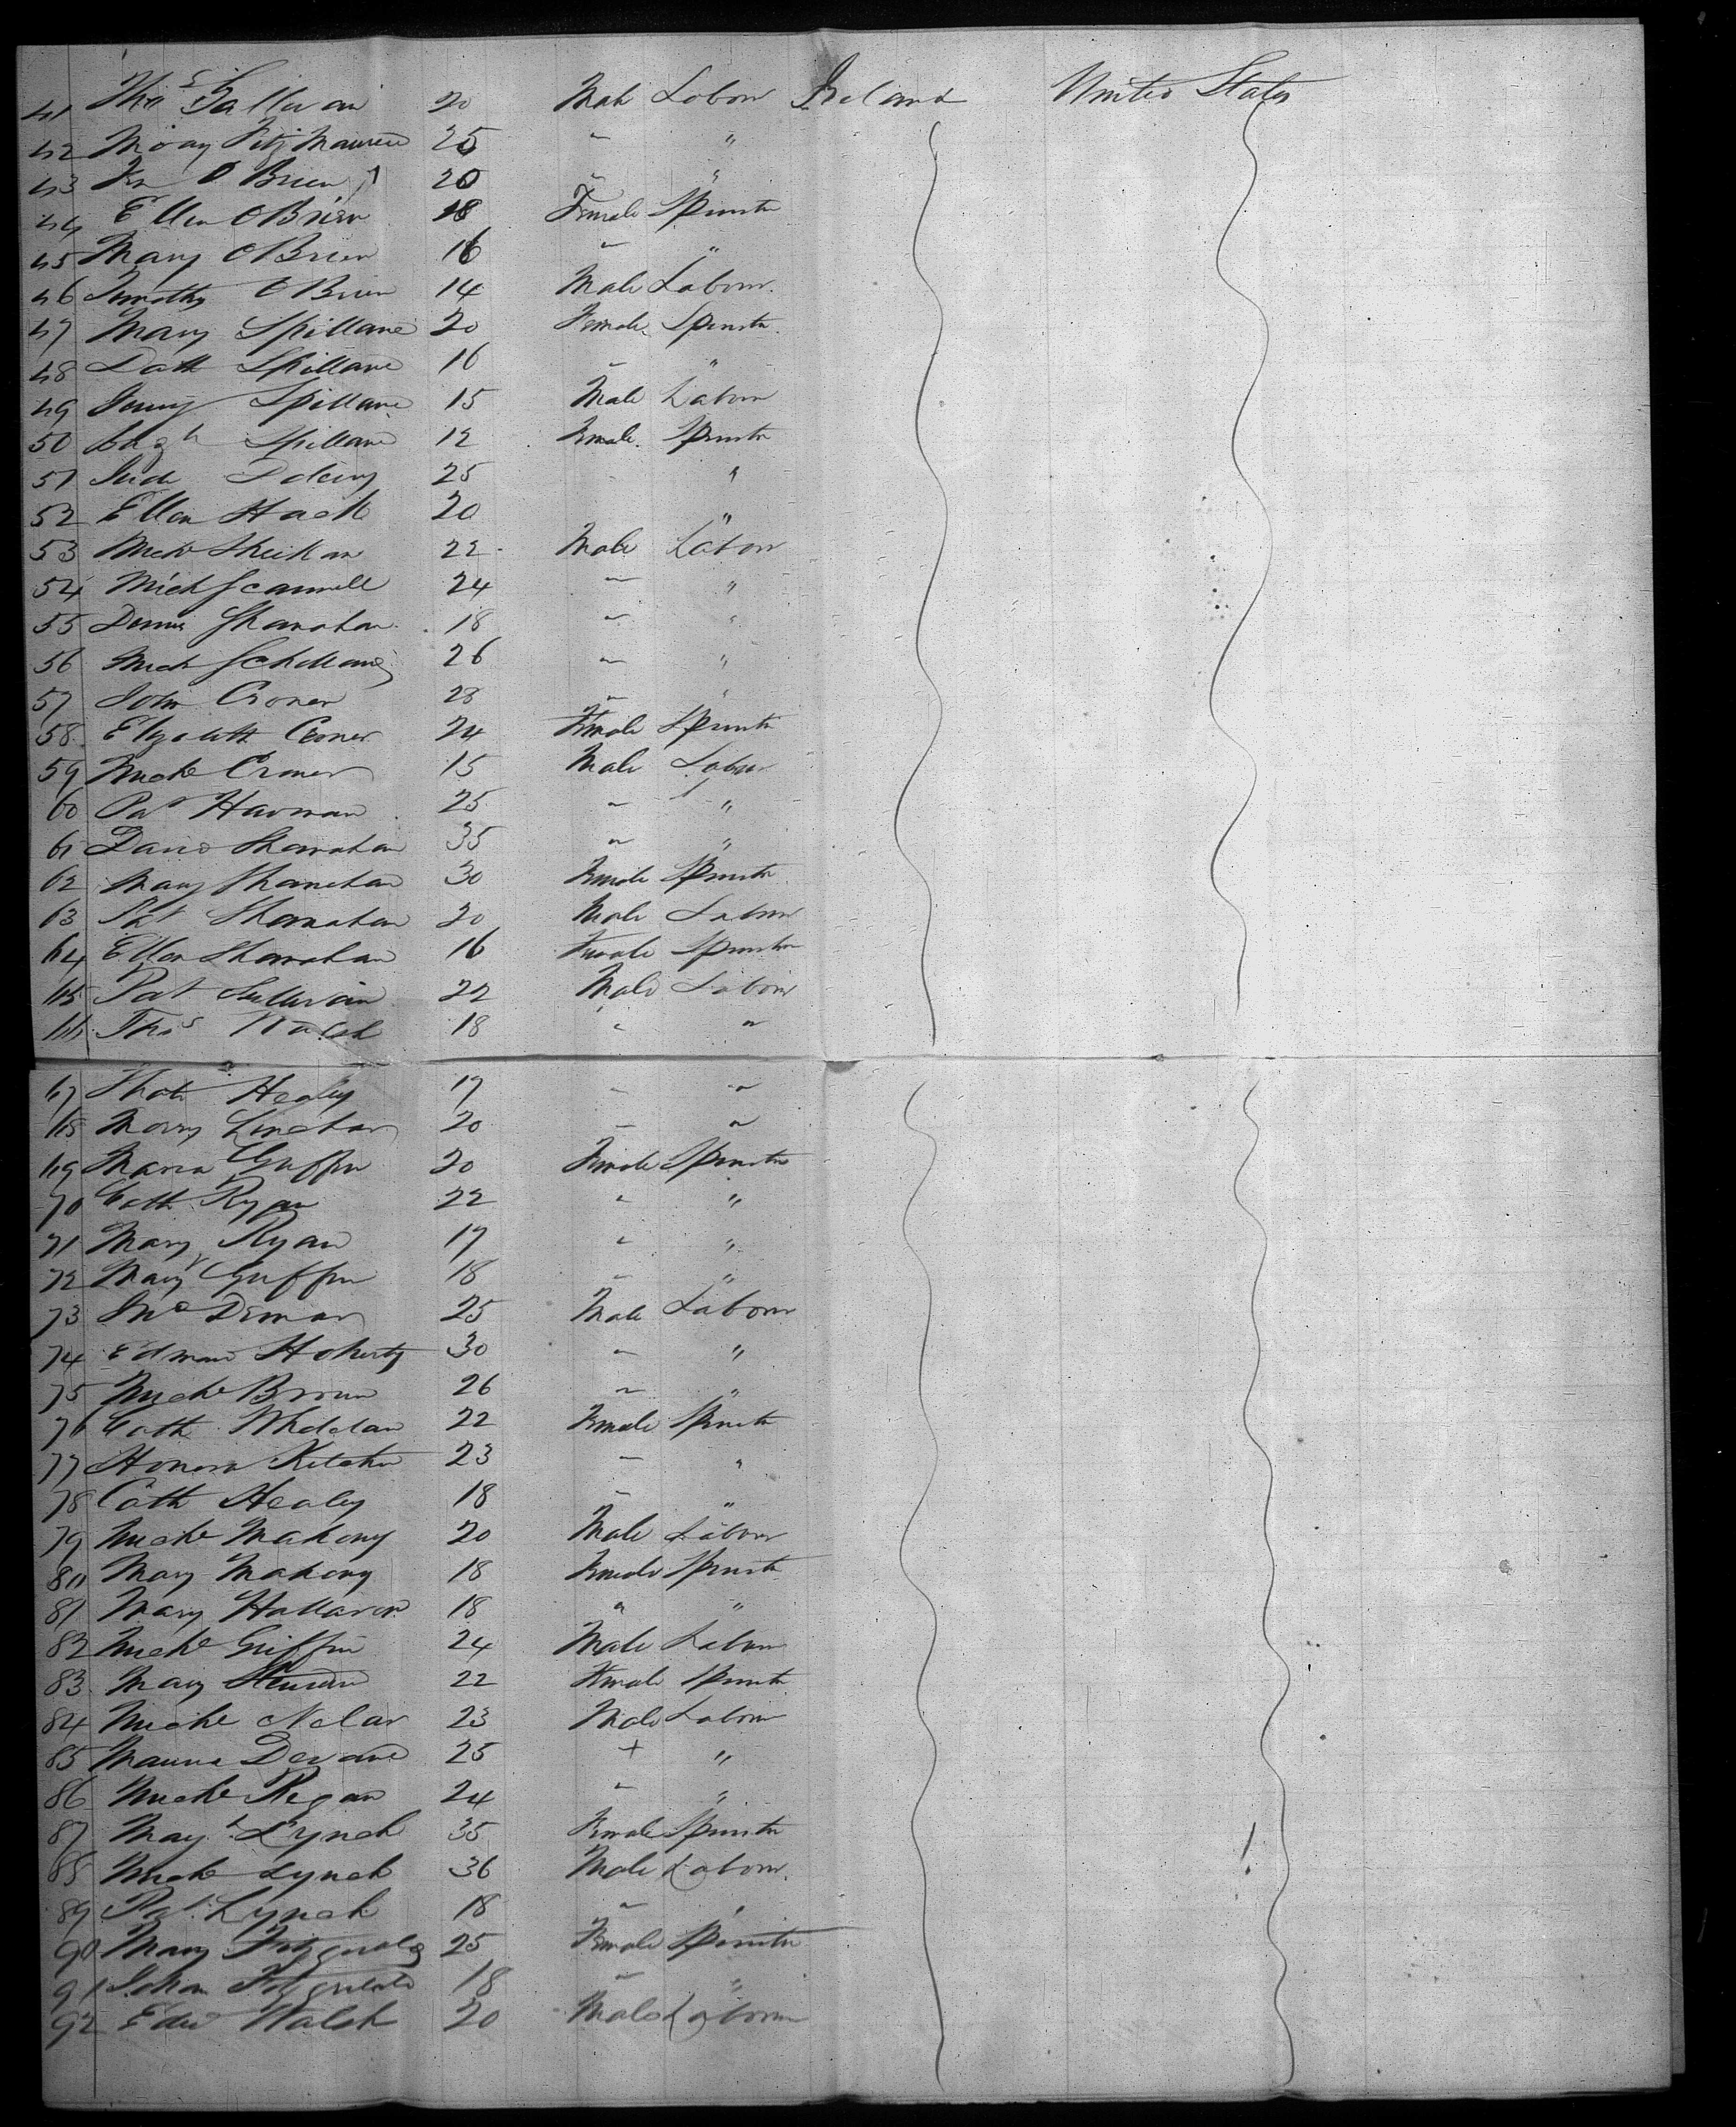 41 Thos Sullivan 20 Male Labour Ireland United States
42 Fitz Maurice 25 " "
43 O Brien 20 " "
44 Ellen O Brien 18 Female Spinstr
45 Mary O Brien 16 " "
46 Timothy O Brien 14 Male Labour
47 Mary Spillane 20 Female Spinstr
48 Spillane 16 " "
49 Spillane 15 Male Labour
50 Spillane 12 Female Spinstr
51 25 " "
52 Ellen 20 "
53 Miche 22 Male Labour
54 Mich Scannell 24 " "
55 Dennis Shanahan 18 " "
56 Mich 26 " "
57 John Croner 28 " "
58 Elizabeth Croner 24 Female Spinstr
59 Miche Croner 15 Male Labour
60 Pat Harman 25 " "
61 David Shanahan 35 " "
62 Mary Shanahan 30 Female Spinstr
63 Pat Shanahan 20 Male Labour
64 Ellen Shanahan 16 Female Spinstr
65 Pat Sullivan 22 Male Labour
66 Thos Walsh 18 " "
67 Healey 17 " "
68 20 " "
69 Maria Griffin 20 Female Spinstr
70 Cath Ryan 22 " "
71 Mary Ryan 17 " "
72 Mary Griffin 18 " "
73 25 Male Labour
74 Edward 30 " "
75 Miche Brown 26 " "
76 Cath Whelelan 22 Female Spinstr
77 Honora 23 " "
78 Cath Healey 18 " "
79 Miche Mahony 20 Male Labour
80 Mary Mahony 18 Female Spinstr
81 Mary Halloron 18 " "
82 Miche Griffin 24 Male Labour
83 Mary 22 Female Spinstr
84 Miche Nolan 23 Male Labour
85 Devane 25 + "
86 Miche Regan 24 " "
87 Mayt Lynch 35 Female Spinstr
88 Miche Lynch 36 Male Labour
89 Pat Lynch 18 " "
90 Mary Fitzgerald 25 Female Spinstr
91 Johan Fitzgerald 18 " "
92 Edwd Walsh 20 Male Labour